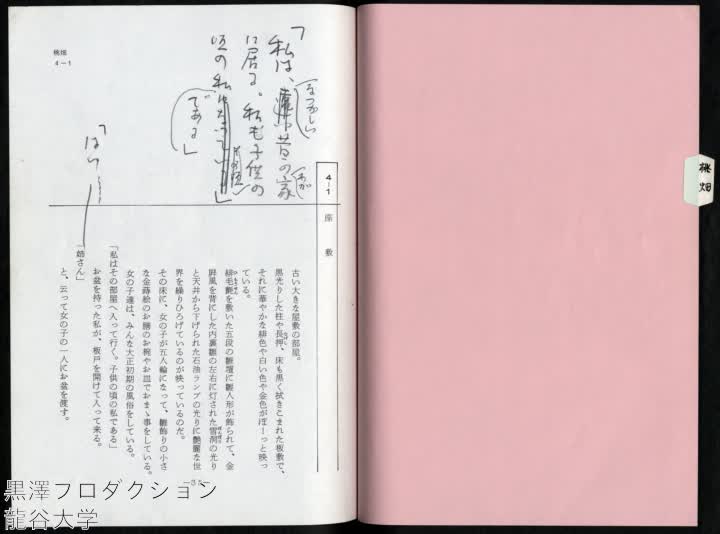 桃畑
桃畑
4－1
「私は、昔の家
なつかしい
わが
に居る。私も子供の
頃の私
である」
「はい
4－1
座敷
古い大きな屋敷の部屋。
黒光りした柱や長押、床も黒く拭きこまれた板敷で、
それに華やかな緋色や白い色や金色がぼーっと映っ
ている。
緋毛氈を敷いた五段の雛壇に雛人形が飾られて、金
屏風を背にした内裏雛の左右に灯された雪洞の光り
と天井から下げられた石油ランプの光りに艶麗な世
界を繰りひろげているのが映っているのだ。
その床に、女の子が五人輪になって、雛飾りの小さ
な金蒔絵のお膳のお椀やお皿でおまゝ事をしている。
女の子達は、みんな大正初期の風俗をしている。
「私はその部屋へ入って行く。子供の頃の私である」
お盆を持った私が、板戸を開けて入って来る。
「姉さん」
と、云って女の子の一人にお盆を渡す。
—35—
黒澤プロダクション
龍谷大学